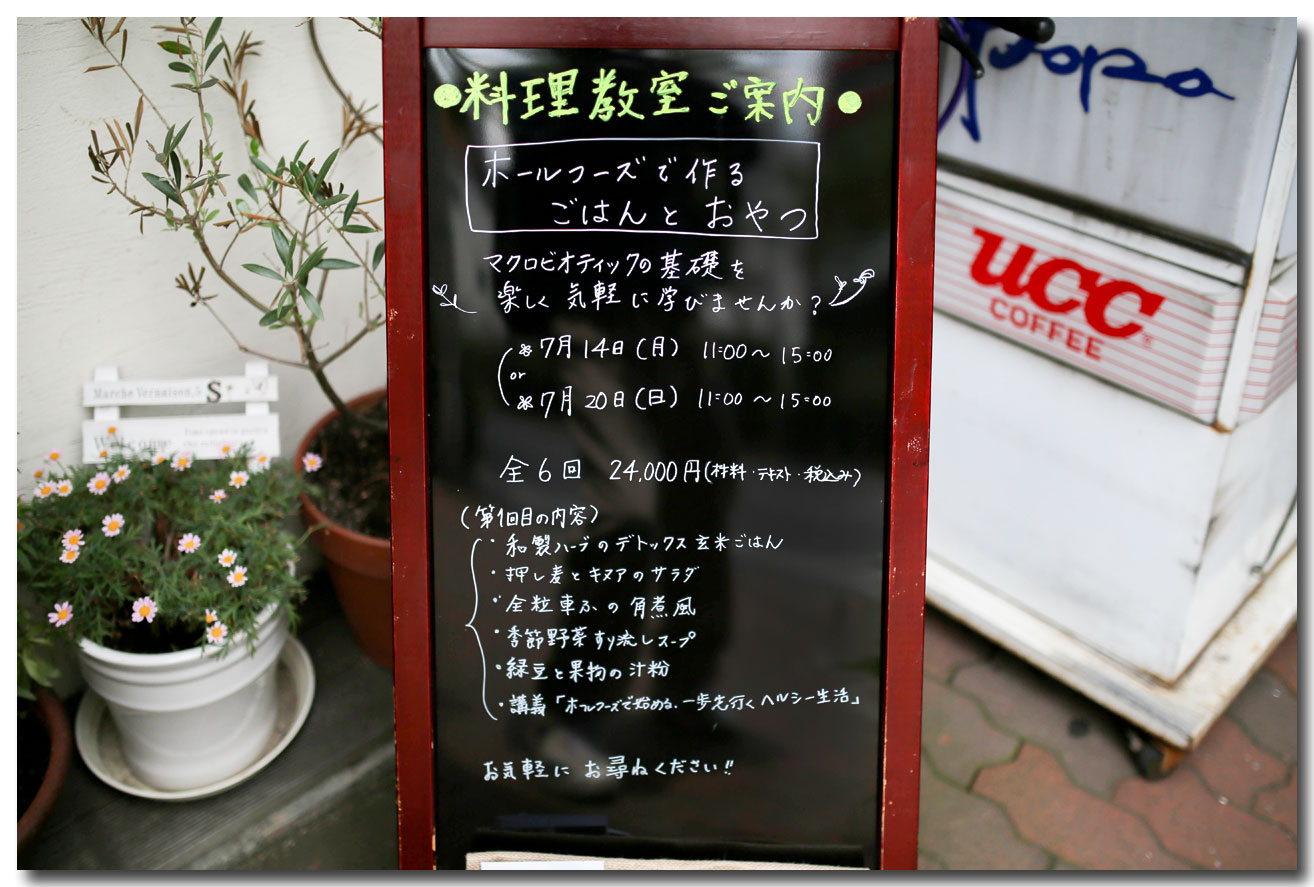 ●料理教室ご案内●
ホールフーズで作る
ごはんと おやつ
マクロビオティックの基礎を
楽しく 気軽に学びませんか?
7月14日(月) 11:00~15:00
or
7月20日(日) 11:00~15:00
全6回 24,000円(材料・テキスト・税込み)
(第1回目の内容)
・和製ハーブのデトックス玄米ごはん
・押し麦とキヌアのサラダ
・全粒車ふの角煮風
・季節野菜すり流しスープ
・緑豆と果物の汁粉
・講義「ホールフーズで始める、一歩先行くヘルシー生活」
お気軽に お尋ねください!!
Marche Vernaison,5 S
Welcome
ucc
COFFEE